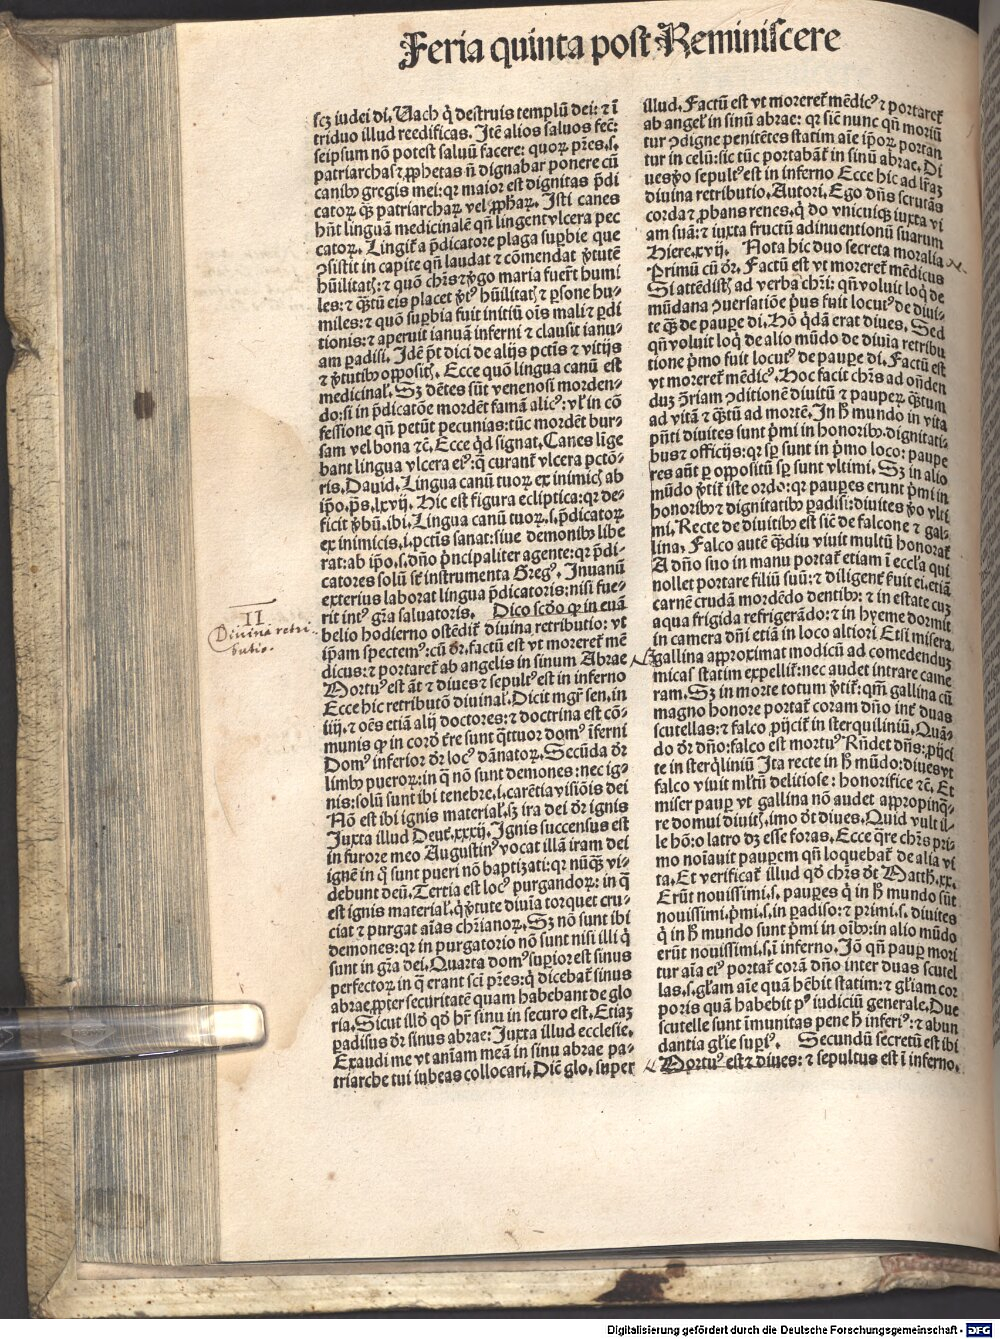 Feria quinta post Reminiscere
scꝫ iudei di. Uach q̇ destruis templū dei: ⁊ ī
triduo illud reedificas. Itē alios saluos fec̄:
seipsum nō potest saluū facere: quoꝝ pr̄es.s.
patriarchas ⁊ ꝓphetas ñ dignabar ponere cū
canibꝰ gregis mei: qꝛ maior est dignitas p̄di
catoꝝ qꝫ patriarchaꝝ vel ꝓphaꝝ. Isti canes
hn̄t linguā medicinalē qn̄ lingent vlcera pec
catoꝝ. Lingit̄ a p̄dicatore plaga suꝑbie que
ꝯsistit in capite qn̄ laudat ⁊ cōmendat v̄tutē
hūilitatꝭ: ⁊ quō chr̄s ⁊ v̄go maria fuer̄t humi
les: ⁊ qꝫtū eis placet v̄tꝰ hūilitatꝭ ⁊ ꝑsone hu-
miles: ⁊ quō suꝑbia fuit initiū ois mali ⁊ ꝑdi
tionis: ⁊ aperuit ianuā inferni ⁊ clausit ianu-
am ꝑadisi. Idē p̄t dici de alijs pctīs ⁊ vitijs
⁊ v̄tutibꝰ oppositꝭ. Ecce quō lingua canū est
medicinal̄. Sꝫ dētes sūt venenosi morden-
do: si in p̄dicatōe mordēt famā alicꝰ: vl̄ in cō
fessione qn̄ petūt pecunias: tūc mordēt bur-
sam vel bona ⁊c̄. Ecce qd̄ signat. Canes līge
bant lingua vlcera eiꝰ: q̄ curant̄ vlcera pctō-
ris. Dauid. Lingua canū tuoꝝ ex inimicꝭ ab
ip̄o. ps̄. lxvij. Hic est figura ecliptica: qꝛ de-
ficit v̄bū. ibi. Lingua canū tuoꝝ.s. p̄dicatoꝝ
ex inimicis.i. pctīs sanat: siue demonibꝰ libe
rat: ab ip̄o.s. dn̄o p̄ncipaliter agente: qꝛ p̄di-
catores solū sūt instrumenta Gregꝰ. Inuanū
exterius laborat lingua p̄dicatoris: nisi fue-
rit intꝰ gr̄a saluatoris. Dico scd̄o ꝙ in euā
belio hodierno ostēdit̄ diuina retributio: vt
ip̄am spectemꝰ: cū dr̄. factū est vt moreret̄ mē
dicus: ⁊ portaret̄ ab angelis in sinum Abrae
Mortuꝰ est āt ⁊ diues ⁊ sepultꝰ est in inferno
Ecce hic retributō diuinal̄. Dicit mgr̄ sen. in
iiij. ⁊ oēs etiā alij doctores: ⁊ doctrina est cō-
munis ꝙ in corde t̄re sunt q̄ttuor domꝰ īferni
Domꝰ inferior dr̄ locꝰ dānatoꝝ. Secūda dr̄
limbꝰ pueroꝝ: in q̄ nō sunt demones: nec ig-
nis: solū sunt ibi tenebre.i. carētia visiōis dei
Nō est ibi ignis material̄. sꝫ ira dei dr̄ ignis
Iuxta illud Deut̄. xxxij. Ignis succensus est
in furore meo Augustinꝰ vocat illā iram dei
ignē in q̄ sunt pueri nō baptizati: qꝛ nūqꝫ vi-
debunt deū. Tertia est locꝰ purgandoꝝ: in q̄
est ignis material̄. q̇ v̄tute diuīa torquet cru-
ciat ⁊ purgat aīas chr̄ianoꝝ. Sꝫ nō sunt ibi
demones: qꝛ in purgatorio nō sunt nisi illi q̇
sunt in gr̄a dei. Quarta domꝰ suꝑior est sinus
perfectoꝝ in q̄ erant scī pr̄es: q̇ dicebat̄ sinus
abrae. ꝓpter securitatē quam habebant de glo
ria. Sicut illō qd̄ hr̄ sinu in securo est. Etiaꝫ
ꝑadisus dr̄ sinus abrae: Iuxta illud ecclesie.
Exaudi me vt aniam meā in sinu abrae pa-
triarche tui iubeas collocari. Dic̄ glo. super
illud. Factū est vt moreret̄ mēdicꝰ ⁊ portaret̄
ab angel̄ in sinū abrae: qꝛ sic̄ nunc qn̄ moriū
tur ꝯdigne penitētes statim aīe ip̄oꝝ portan
tur in celū: sic tūc portabāt̄ in sinū abrae. Di
ues v̄o sepultꝰ est in inferno Ecce hic ad lr̄aꝫ
diuina retributio. Autori. Ego dn̄s scrutās
corda ⁊ ꝓbans renes. q̇ do vnicuiqꝫ iuxta vi
am suā: ⁊ iuxta fructū adinuentionū suarum
Hiere. xvij. Nota hic duo secreta moralia
Primū cū dr̄. Factū est vt moreret̄ mēdicus
Si attēdistꝭ ad verba chr̄i: qn̄ voluit loq̇ de
mūdana ꝯuersatiōe p̄us fuit locutꝰ de diui-
te qꝫ de pauꝑe di. Hō q̇dā erat diues. Sed
qn̄ voluit loq̇ de alio mūdo de diuīa retribu
tione p̄mo fuit locutꝰ de pauꝑe di. Factū est
vt moreret̄ mēdicꝰ. Hoc facit chr̄s ad oñden
duꝫ ꝯr̄iam ꝯditionē diuitū ⁊ pauperꝫ qꝫtum
ad vitā ⁊ qꝫtū ad mortē. In hͦ mundo in vita
pn̄ti diuites sunt p̄mi in honoribꝰ. dignitati-
bus ⁊ officijs: qꝛ sꝑ sunt in p̄mo loco: paupe
res aūt ꝑ oppositū sꝑ sunt vltimi. Sꝫ in alio
mūdo v̄tit̄ iste ordo: qꝛ pauꝑes erunt p̄mi in
honoribꝰ ⁊ dignitatibꝰ ꝑadisi: diuites v̄o vlti
mi. Recte de diuitibꝰ est sic̄ de falcone ⁊ gal-
lina. Falco autē qꝫdiu viuit multū honorat̄
A dn̄o suo in manu portat̄ etiam ī eccl̄a qui
nollet portare filiū suū: ⁊ diligent̄ ꝼuit ei. etiā
carnē crudā mordēdo dentibꝰ: ⁊ in estate cuꝫ
aqua frigida refrigerādo: ⁊ in hyeme dormit
in camera dn̄i etiā in loco altiori Etsi misera
gallina approximat modicū ad comedenduꝫ
micas statim expellit̄: nec audet intrare came
ram. Sꝫ in morte totum v̄tit̄: qm̄ gallina cū
magno honore portat̄ coram dn̄o int̄ duas
scutellas: ⁊ falco ꝓijcit̄ in sterquiliniū. Quā-
do dr̄ dn̄o: falco est mortuꝰ Rn̄det dn̄s: ꝓijci
te in sterq̇liniū Ita recte in hͦ mūdo: diues vt
falco viuit ml̄tū delitiose: honorifice ⁊c̄. Et
miser pauꝑ vt gallina nō audet appropinq̄-
re domui diuitꝭ. imo dt̄ diues. Quid vult il-
le hō: o latro dꝫ esse foras. Ecce q̄re chr̄s pri-
mo noīauit pauꝑem qn̄ loquebat̄ de alia vi
ta. Et verificat̄ illud qd̄ chr̄s dt̄ Matth. xx.
Erūt nouissimi.s. pauꝑes q̇ in hͦ mundo sūt
nouissimi. p̄mi.s. in ꝑadiso: ⁊ primi.s. diuites
q̇ in hͦ mundo sunt p̄mi in oībꝰ: in alio mūdo
erūt nouissimi.s. ī inferno. Iō qn̄ pauꝑ mori
tur aīa eiꝰ portat̄ corā dn̄o inter duas scutel
las.s. gl̄am aīe quā hēbit statim: ⁊ gl̄iam cor
poris quā habebit pꝰ iudiciū generale. Due
scutelle sunt īmunitas pene hͦ inferiꝰ: ⁊ abun
dantia gl̄ie suꝑiꝰ. Secundū secretū est ibi
Mortuꝰ est ⁊ diues: ⁊ sepultus est ī inferno.
II
Diuina retri-
butio.
Digitalisierung gefördert durch die Deutsche Forschungsgemeinschaft - DFG